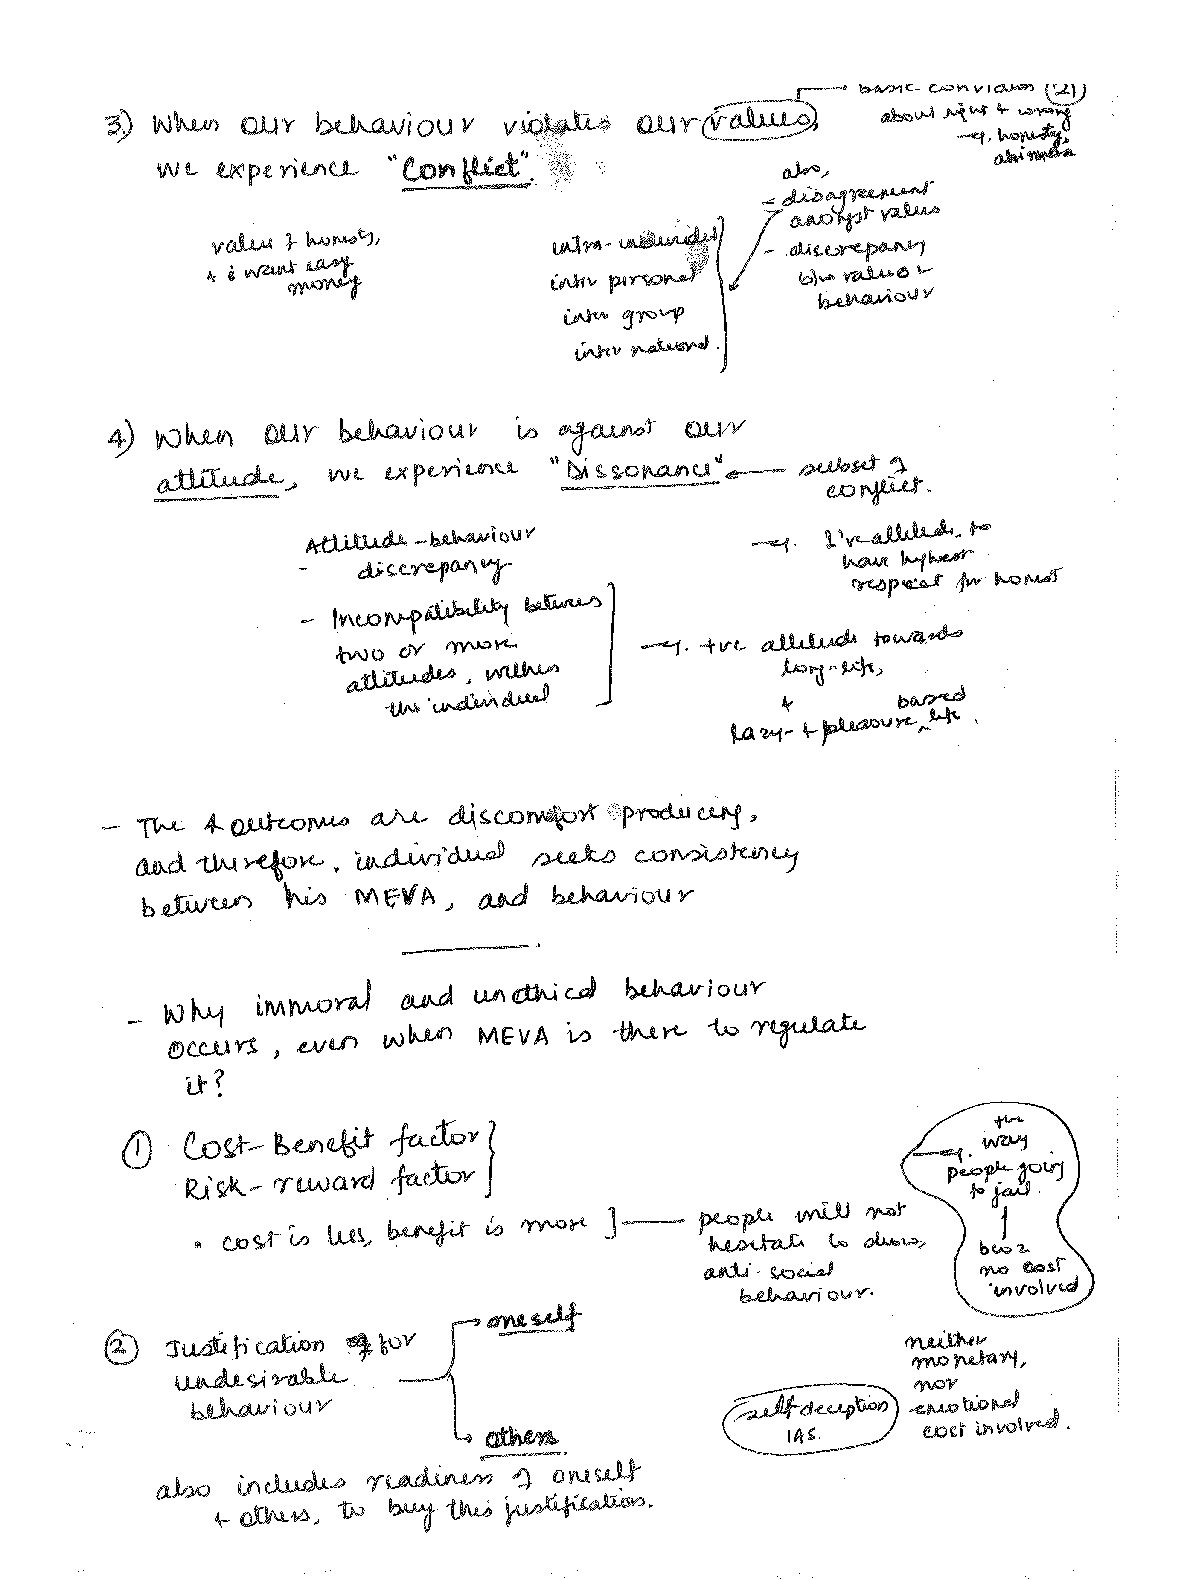 basic conviction (21)
about right & wrong
→ eg. honesty,
3) When our behaviour violates our values,
we experience "Conflict".
also,
- disagreement
amongst values
- discrepancy
b/w values &
behaviour
value of honesty,
& i want easy
money
intra-individual
inter personal
inter group
inter national.
4) When our behaviour is against our
attitude, we experience "Dissonance" ← subset of
conflict.
- Attitude-behaviour
discrepancy
→ eg. I've attitude, to
have highest
respect for honest
- Incompatibility between
two or more
attitudes, within
the individual
→ eg. +ve attitude towards
long-life,
&
lazy- & pleasure based life.
- The 4 outcomes are discomfort producing,
and therefore, individual seeks consistency
between his MEVA, and behaviour
- Why immoral and unethical behaviour
occurs, even when MEVA is there to regulate
it?
① Cost-Benefit factor
Risk-reward factor
• cost is less, benefit is more ] — people will not
hesitate to show,
anti-social
behaviour.
→ eg. the
way
people going
to jail.
↑
bcoz
no cost
involved
neither
monetary,
nor
emotional
cost involved.
② Justification for
undesirable
behaviour
→ oneself
→ others
self deception
IAS.
also includes readiness of oneself
& others, to buy this justification.